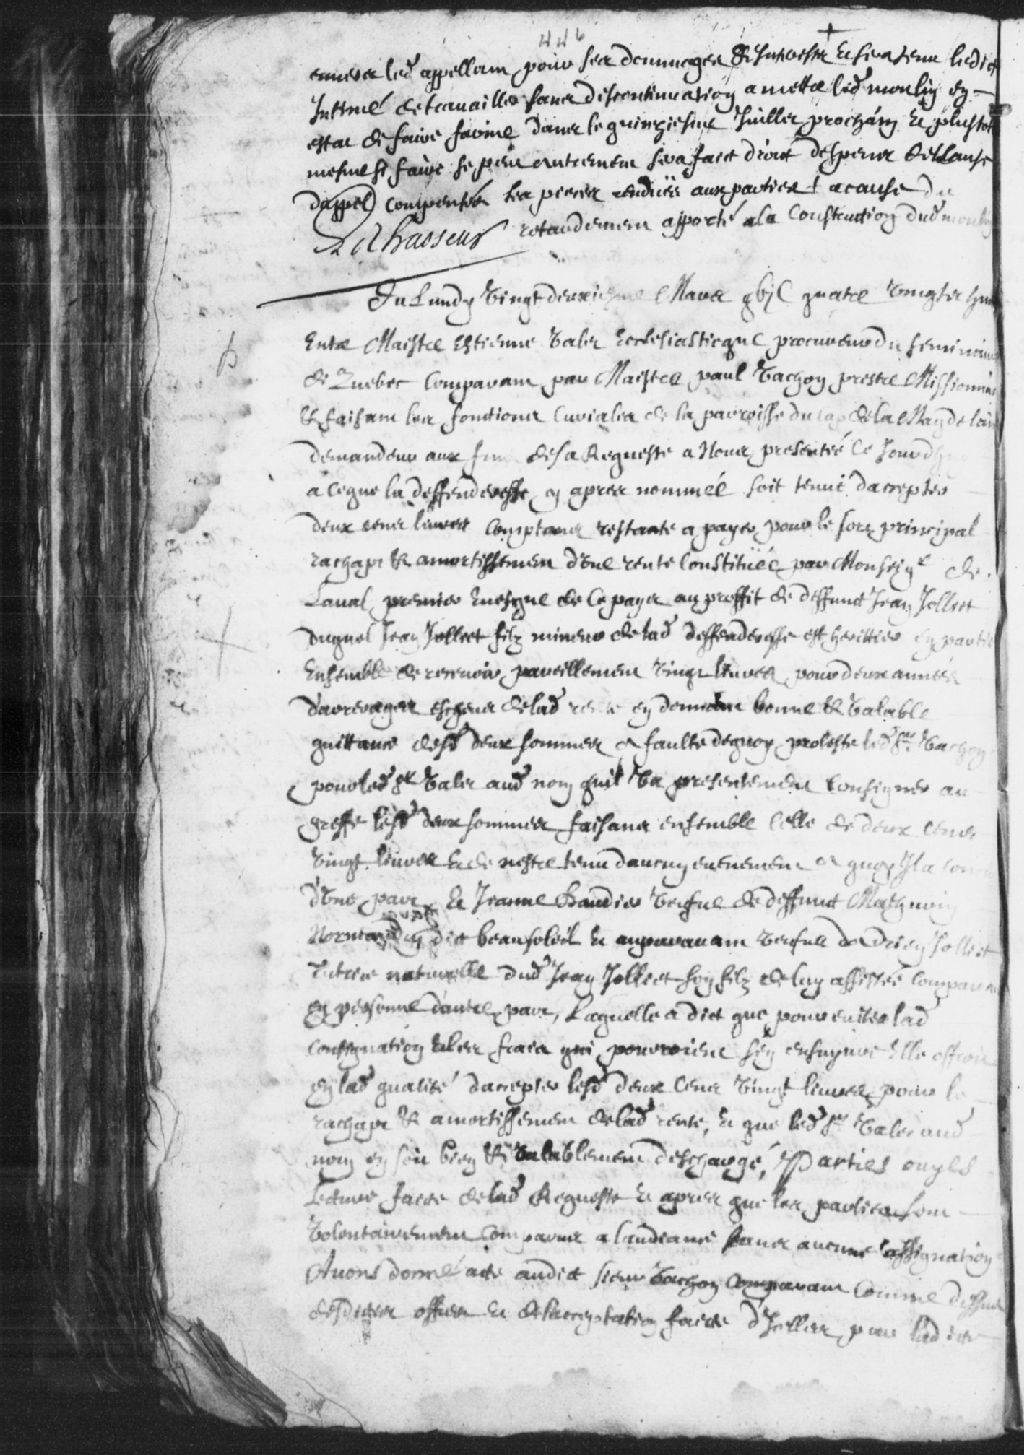 446
envers led appellant pour ses dommages & interests & sera tenu ledict
Intimé de travailler sans discontinuation a mettre led moulin en
estat de faire farine dans le quinziesme Juillet prochain & plustost
mesme si faire se peut autrement sera faict droict despens de la cause
dappel compensés les pieces rendües aux parties + a cause du
retardement apporté a la construction dud moulin
Du Lundy Vingt deuxiesme Mars gbjC quatre Vingts
Entre Maistre Estienne Valet Ecclesiasticque procureur du seminaire
de Quebec Comparant par Maistre paul Vachon prestre Missionnaire
& faisant les fonctions Curiales de la parroisse du cap de la Magdelaine
demandeur aux fins de sa Requeste a Nous presentée Ce Jourdhuy
a ce que la deffenderesse cy apres nommée soit tenüe daccepter
deux cens livres Comptans restante a payer pour le sort principal
rachapt & amortissement d'Une rente Constituée par Monseigr de
Laval premier Evesque de ce payer au proffit de deffunct Jean Jollict
duquel Jean Jollict filz mineur de lad deffenderesse est herittier en partie
Ensemble de recevoir pareillement Vingt livres pour deux années
d'arrerages escheus de lad rente en donnant bonne & Valable
quittance desd deux sommes a faulte de quoy proteste led Sr Vachon
pour led Sr Valet aud nom quil Va presentement Consigner au
greffe lesd deux sommes faisans ensemble Celle de deux Cens
Vingt livres & de nestre tenu daucun evenement a quoy Il a
d'Une part & Jeanne Baudier Vefue de deffunct Mathurin
Normandin dict beausoleil & auparavant Vefue de Jollict
tutrice naturelle dud Jean Jollict son filz de luy assistée comparant
en personne d'autre part, Laquelle a dict que pour eviter lad
Consignation & les frais qui pourroient s'en ensuyure Elle offroit
en lad qualité daccepter lesd deux Cens Vingt livres pour le
rachapt & amortissement de lad rente, & que led Sr Valet aud
nom en soit bien & Valablement deschargé, Parties ouyes
Lecture faicte de lad Requeste & apres que les parties sont
Volontairement Comparües a laudiance sans aucune assignation
Avons donné acte audict sieur Vachon Comparant Comme dessus
desdictes offres & de l'acceptation faicte d'Jcelles par ladicte